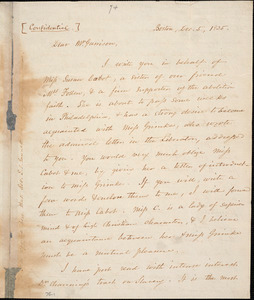 [Confidential]
Boston, Dec. 5, 1835.
Dear Mr Garrison,
I write you in behalf of
Miss Susan Cabot, a sister of our friend
Mrs Follen, & a firm supporter of the abolition
faith. She is about to pass some weeks
in Philadelphia, & has a strong desire to become
acquainted with Miss Grimke, who wrote
the admired letter in the Liberator, addressed
to you. You would very much oblige Miss
Cabot & me, by giving her a letter of introduct-
ion to Miss Grimke. If you will write a
few words & enclose them to me, I will give
them to Miss Cabot. Miss C. is a lady of superior
mind & of high Christian character, & I believe
an acquaintance between her & Miss Grimke
must be a mutual pleasure.
I have just read with intense interest
Dr Channing's tract on Slavery. It is the most